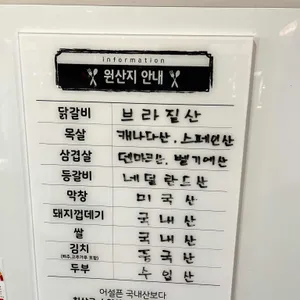 information
원산지 안내
닭갈비 브라질산
목살 캐나다산, 스페인산
삼겹살 덴마크산, 벨기에산
등갈비 네덜란드산
막창 미국산
돼지껍데기 국내산
쌀 국내산
김치 중국산
(배추, 고추가루 포함)
두부 수입산
어설픈 국내산보다